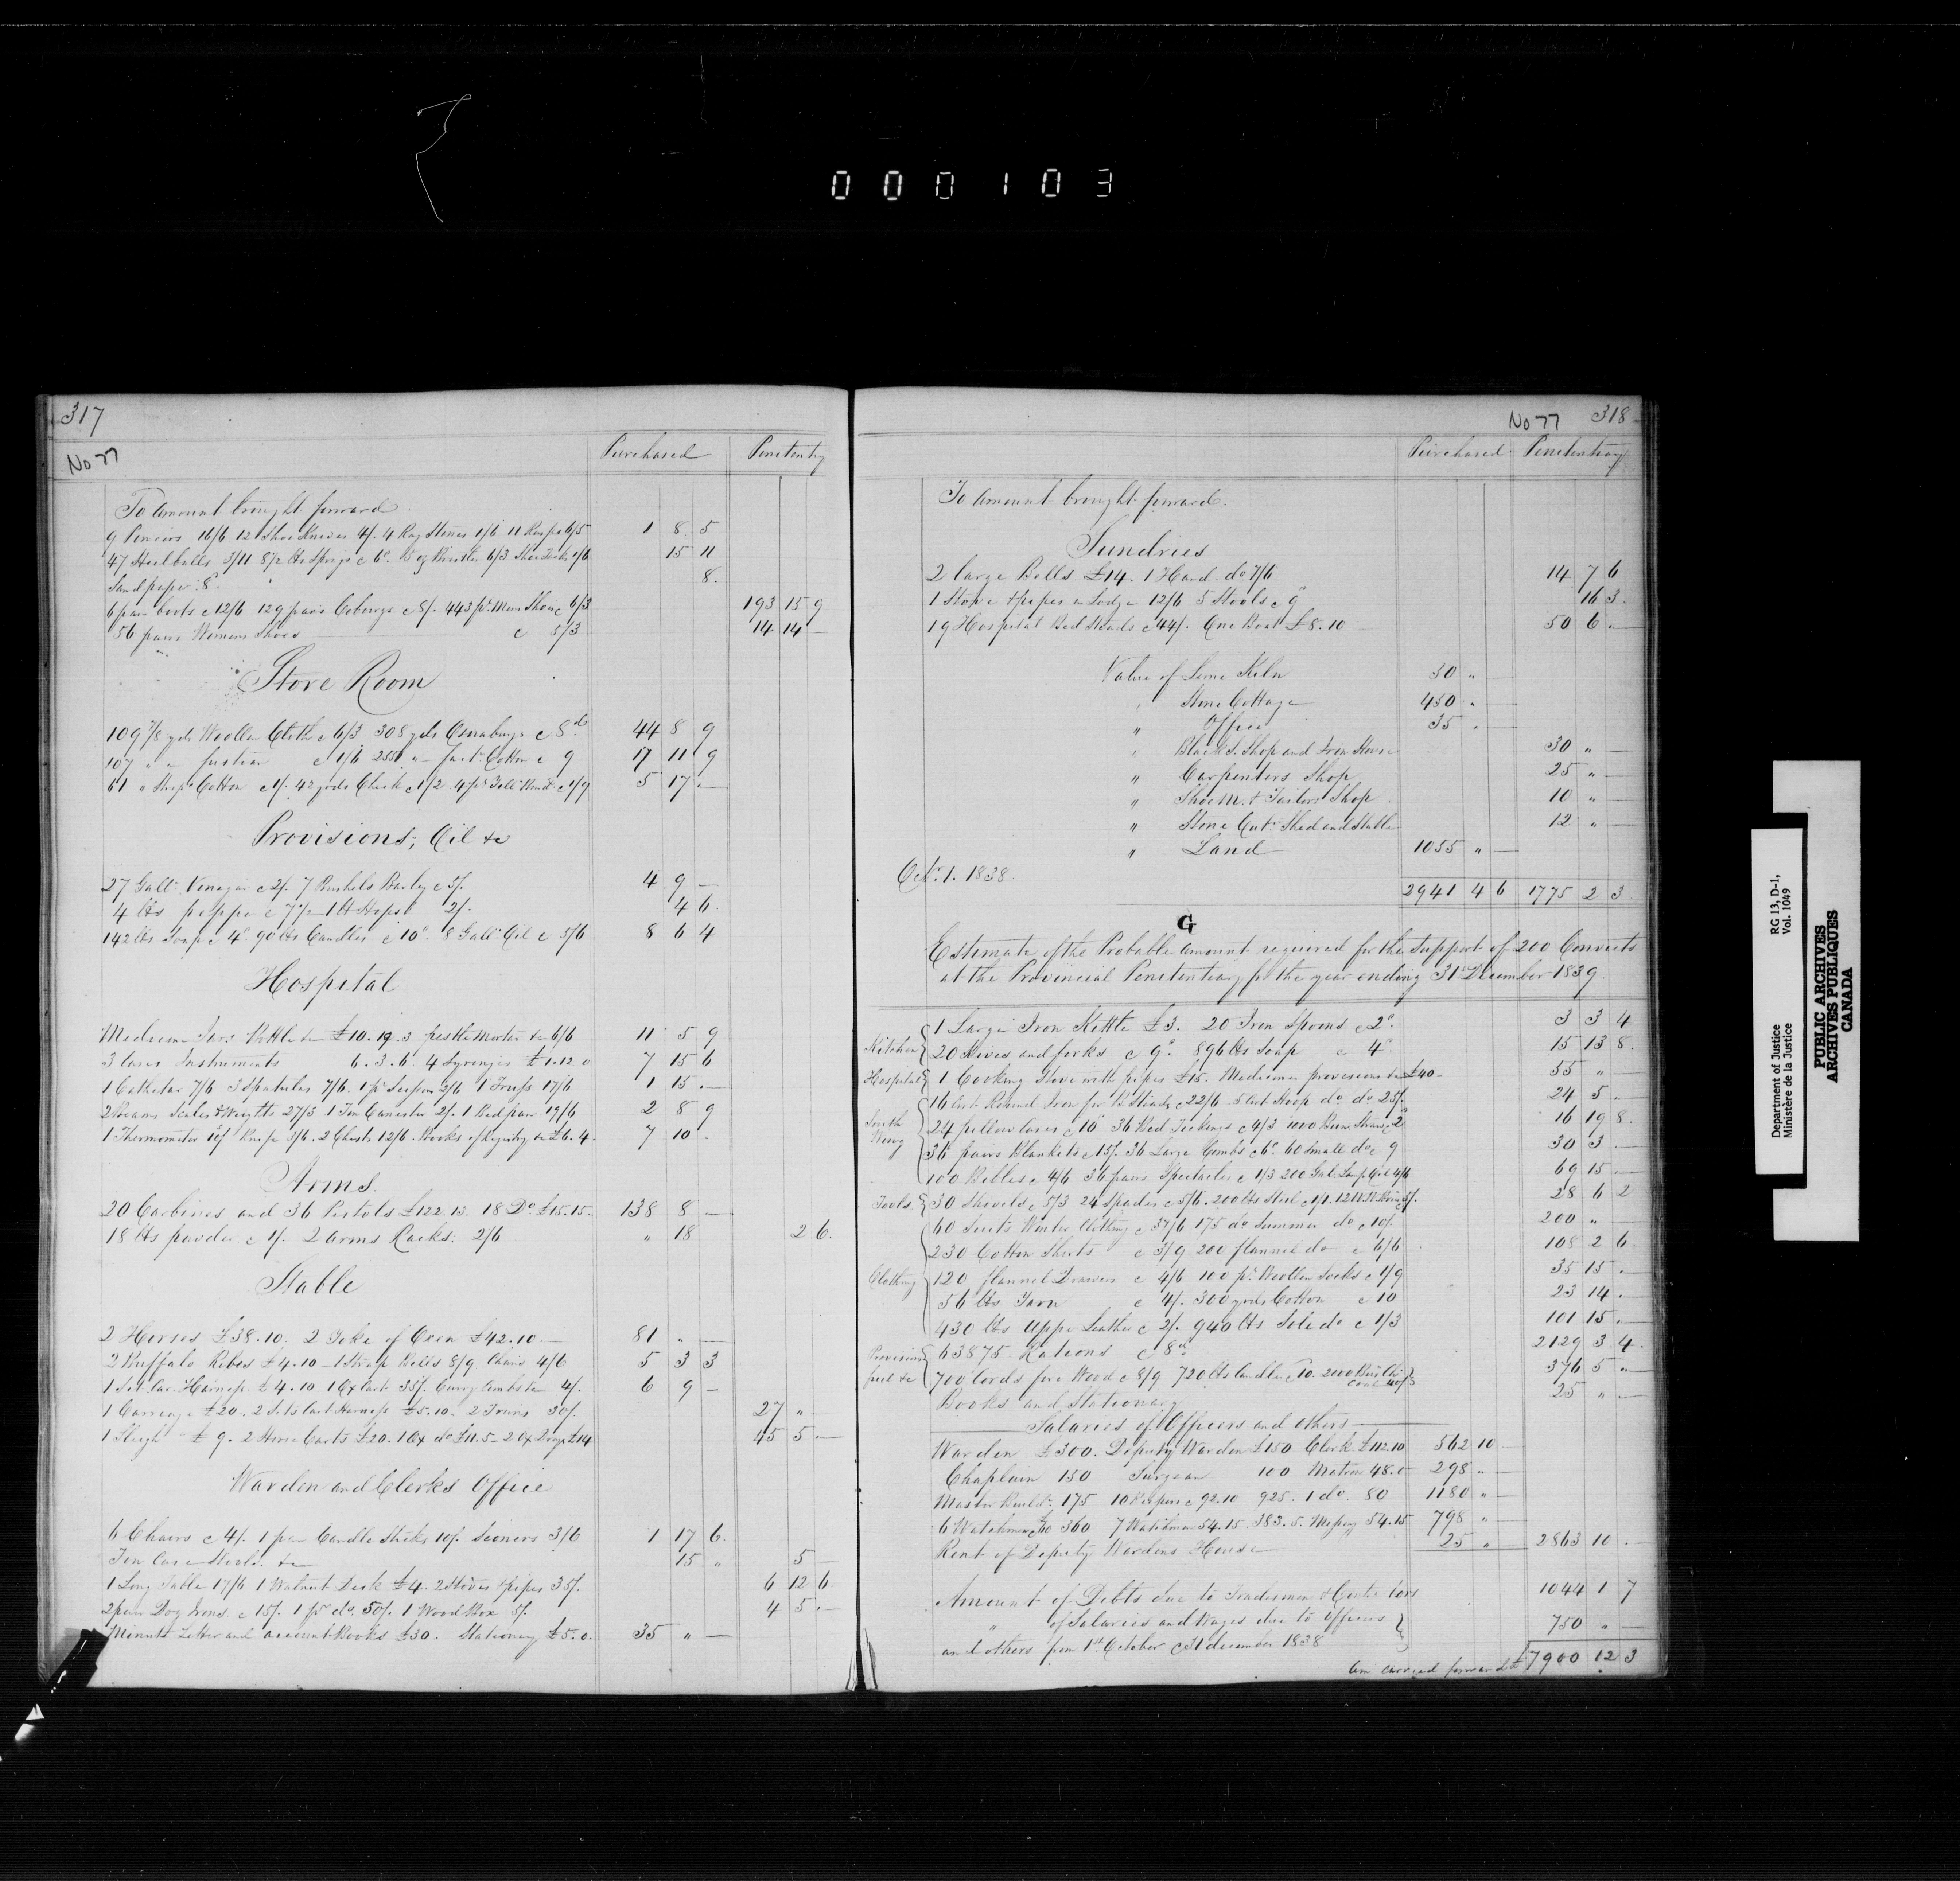 000103
317
No 77
Purchased Penitentry
To Amount brought forward
9 Pincers 16/6 12 Shoe Knives 4/. 4 Rag Stones 1/6 11 Rasps 6/5 1 8 5
47 Heelballs 3/11 8½ lbs Sprigs c 6d. 10 oz Bristles 6/3 15 11
Sand paper 8d. 8.
6 pair boots c 12/6 129 pairs Cobourgs c 8/. 443 pr. Mens Shoes c 6/3 193 15 9
56 pairs Womens Shoes c 5/3 14 14 —
Store Room
109 7/8 yds Woollen Cloth c 6/3 308 yds Osnaburgs c 8d. 44 8 9
107 " " fustian c 1/6 " Fact. Cotton c 9 17 11 9
61 " Stripd Cotton c 1/. 42 yards Check c 1/2 4 c 1/9 5 17 —
Provisions, Oil &c
27 Galls. Vinegar c 2/. 7 Bushels Barley c 5/. 4 9 —
4 lbs pepper c 7½ 1 lb Hops 2/. 4 6
142 lbs Soap c 4d. 90 lbs Candles c 10d. 8 Galls. Oil c 5/6 8 6 4
Hospital
Medicine Jars Bottles &c £10.19.3 pestle Mortar &c 6/6 11 5 9
3 Cases Instruments 6.3.6 4 Syringes £1.12.0 7 15 6
1 Catheter 7/6 3 Spatulas 7/6. 1 pr Scissors 2/6 1 Truss 17/6 1 15 —
2 Beams Scales & Weights 27/3 1 Tin Canaster 2/. 1 Bed pan 19/6 2 8 9
1 Thermometer 3/6. 2 Chests 12/6. Books of Registry &c £6.4. 7 10 .
Arms
20 Carbines and 36 Pistols £122.13. 18 Do. £15.15. 138 8 —
18 lbs powder c 1/. 2 Arms Racks. 2/6 " 18 2 6.
Stable
2 Horses £38.10. 2 Yoke of Oxen £42.10. — 81 " —
2 Buffalo Robes £4.10 — 1 Strap Bells 8/9 Chains 4/6 5 3 3
1 Set Car. Harness £4.10 1 Ox Cart 35/. Curry Combs &c 4/. 6 9 —
1 Carriage £20. 2 Sets Cart Harness £5.10. 2 Trucks 30/. 27 " —
1 Sleigh £9. 2 Horse Carts £20. 1 Ox do £11.5 — 2 Ox Drags £14 45 5 —
Warden and Clerks Office
6 Chairs c 4/. 1 pair Candle Sticks 10/. Scissors 3/6 1 17 6
Ten Case Stools &c 15 " 5 —
1 Long Table 17/6 1 Walnut Desk £4. 2 Stoves & pipes 35/. 6 12 6
2 pair Dog Irons c 15/. 1 pr do. 50/. 1 Wood Box 5/. 4 5 —
Minute Letter and account Books £30. Stationery £5.0. 35 " —
No 77 318
Purchased Penitentiary
To Amount brought forward.
Sundries
2 large Bells £14. 1 Hand do 7/6 14 7 6
1 Stove & pipes in Lodge 12/6 5 Stools c 9d 16 3.
19 Hospital Bed Steads c 44/. One Boat £8.10 50 6 —
Value of Lime Kiln 30 " —
" Stone Cottage 450 " —
" Office 35 " —
" Black S. Shop and Iron House 30 " —
" Carpenters Shop 25 " —
" Shoe M. & Tailors Shop 10 " —
" Stone Cutr. Shed and Stable 12 " —
" Land 1055 " —
Oct. 1. 1838. 2941 4 6 1775 2 3.
G
Estimate of the Probable amount required for the Support of 200 Convicts
at the Provincial Penitentiary for the year ending 31st December 1839.
Kitchen { 1 Large Iron Kettle £3. 20 Iron Spoons c 2d. 3 3 4
20 Knives and forks c 9d. 896 lbs Soap c 4d. 15 13 8.
Hospital { 1 Cooking Stove with pipes £15. Medicines provisions &c £40 — 55 " —
South Wing { 16 Cwt Round Iron for Bedsteads c 22/6. 5 Cwt Hoop do do 25/. 24 5 —
24 pillow Cases c 10d 36 Bed Tickings c 4/3 1000 Bun. Straw c 2d 16 19 8.
36 pairs Blankets c 15/. 36 Large Combs c 6d. 60 Small do c 9 30 3 —
100 Bibles c 4/6 36 pairs Spectacles c 1/3 200 Gal. Lamp Oil 4/6 69 15 —
Tools { 30 Shovels c 5/3 24 Spades c 5/6. 200 lbs Steel c 1/1. 5/. 28 6 2
Clothing { 60 Suits Winter Clothing c 37/6 175 do Summer do c 10/. 200 " —
230 Cotton Shirts c 3/9 200 flannel do c 6/6 108 2 6
120 flannel Drawers c 4/6 100 pr. Woollen Socks c 1/9 35 15 —
56 lbs Yarn c 4/. 300 yards Cotton c 10 23 14 —
430 lbs Upper Leather c 2/. 940 lbs Sole do c 1/3 101 15 —
Provisions fuel &c { 63875 Rations c 8d. 2129 3 4.
700 Cords fire Wood c 8/9 720 lbs Candles c 10. 2000 Bus. Ch. Coal 40/. } 376 5 "
Books and Stationary 25 " —
Salaries of Officers and others
Warden £300. Deputy Warden £150 Clerk £112.10 562 10 —
Chaplain 150 Surgeon 100 Matron 48.0 298 " —
Master Buildr. 175 10 Keepers c 92.10 925. 1 do. 80 1180 " —
6 Watchmen c 60 360 7 Watchmen 54.15 383.5. Messengr 54.15 798 " —
Rent of Deputy Wardens House 25 " — 2863 10 —
Amount of Debts due to Tradesmen & Contractors 1044 1 7
" of Salaries and Wages due to Officers }
and others from 1st October c 31 december 1838 } 750 " —
Am carried forward £ 7900 12 3
Department of Justice
Ministère de la Justice
RG 13, D-1,
Vol. 1049
PUBLIC ARCHIVES
ARCHIVES PUBLIQUES
CANADA